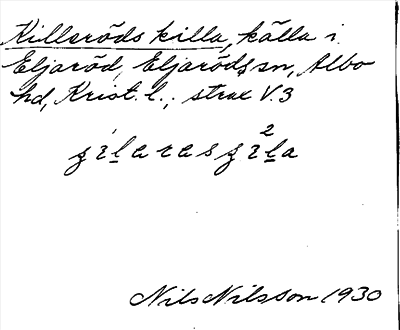 Killeröds killa, källa i
Eljaröd, Eljaröds sn, Albo
hd, Krist. l.; strax V. 3
Nils Nilsson 1930